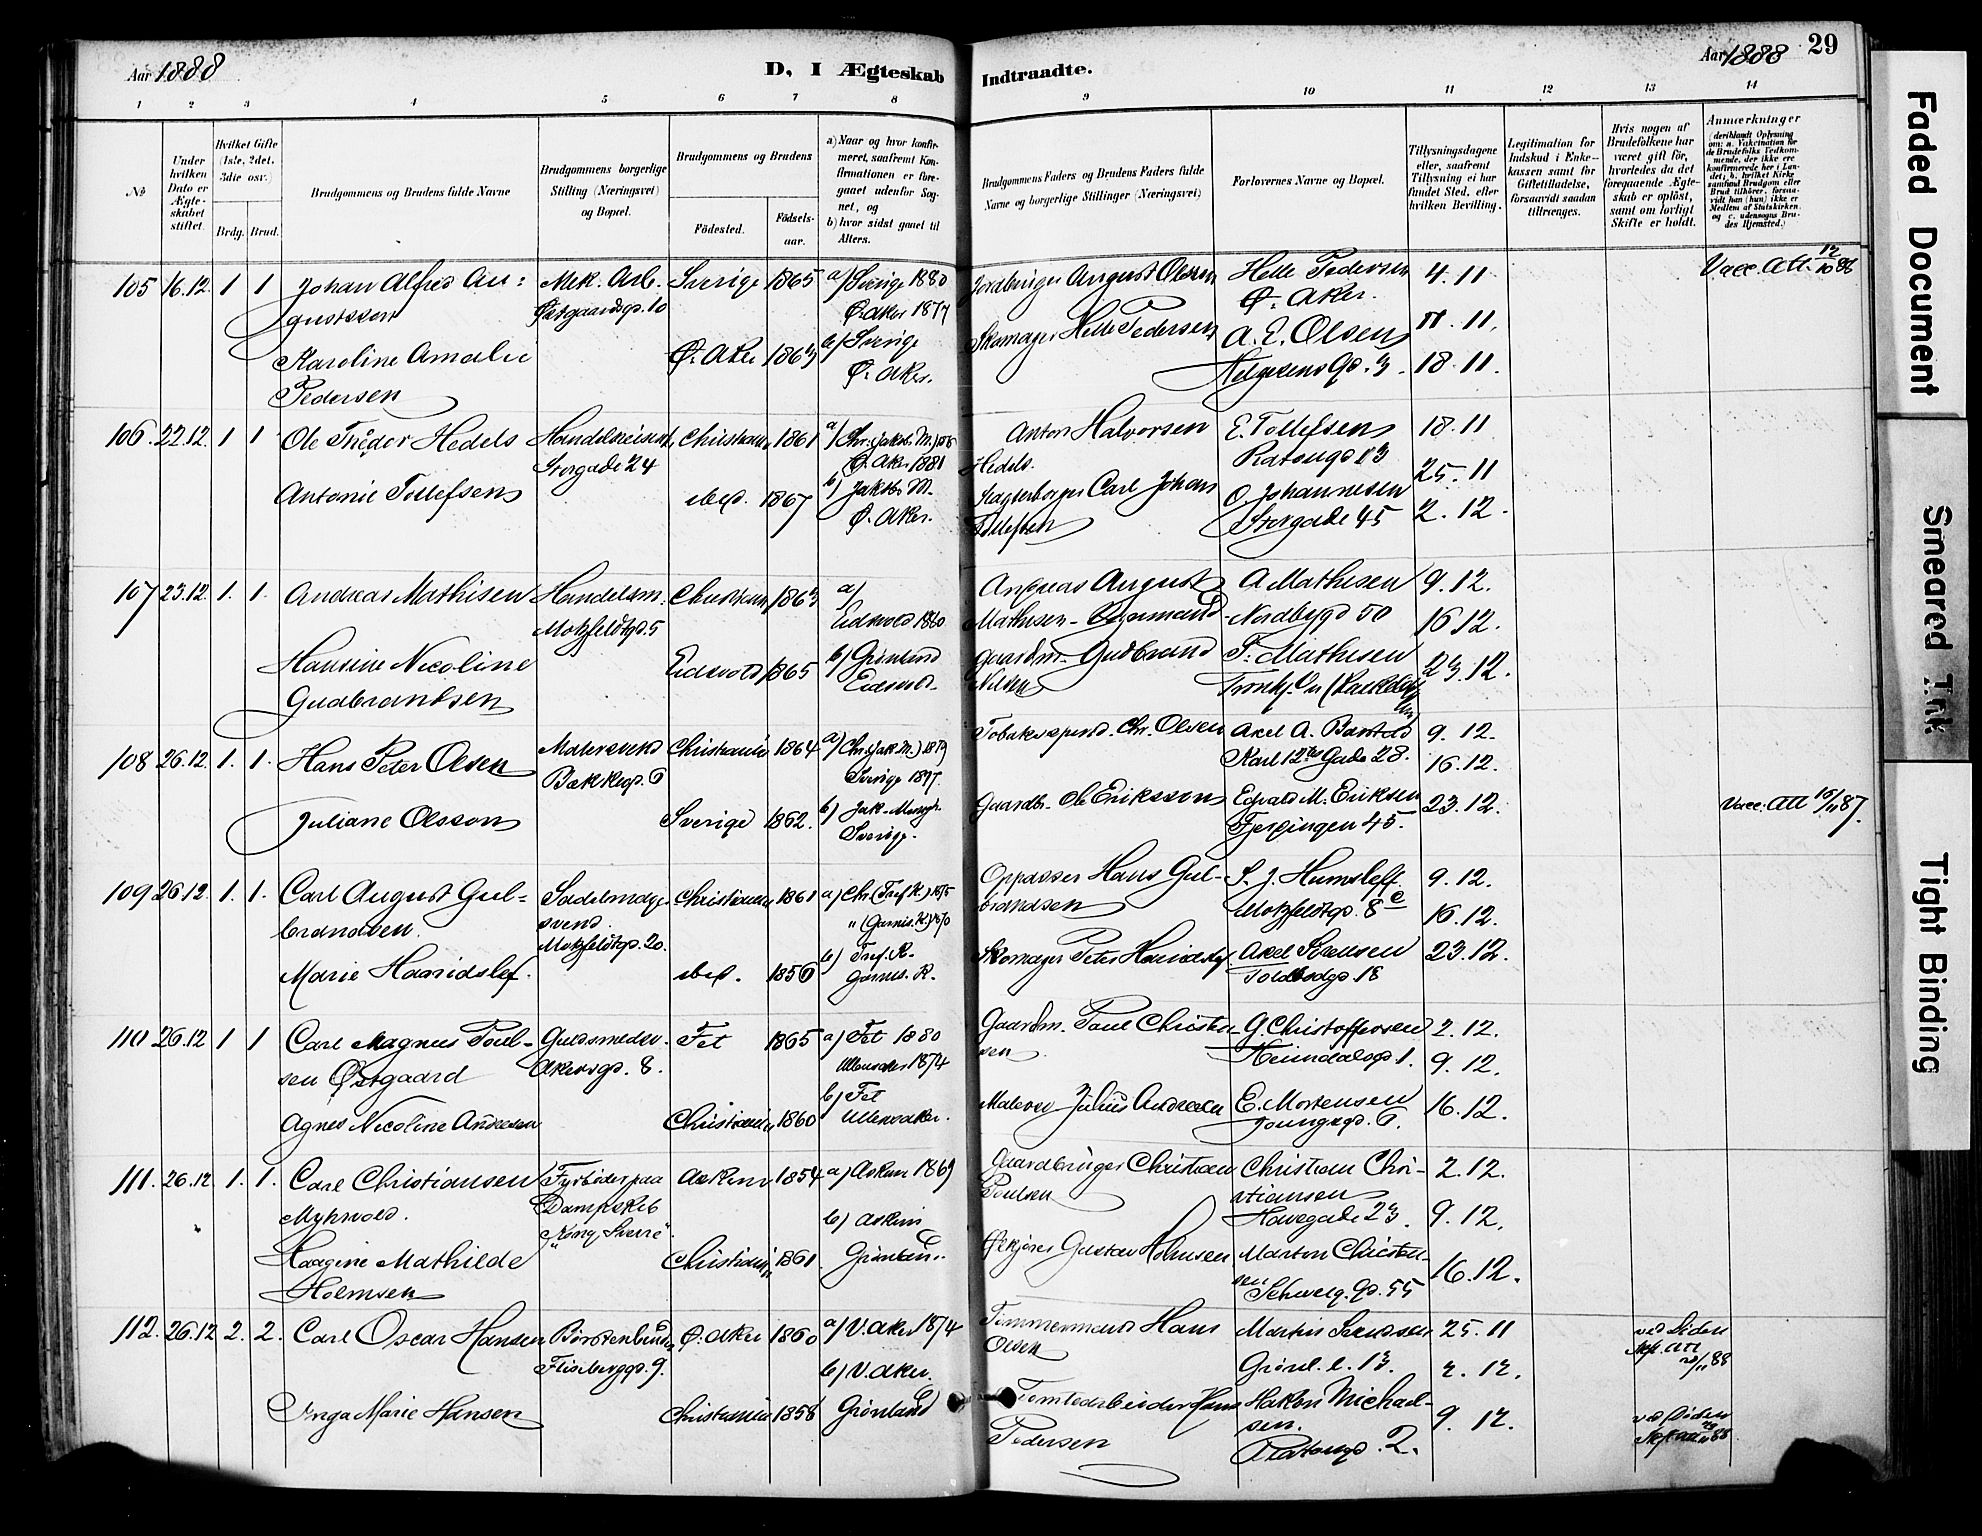 Aar 1888
D, I Ægteskab
Indtraadte.
Aar 1888 29
1 2 3 4 5 6 7 8 9 10 11 12 13 14
No
Under hvilken Dato er Ægteskabet stiftet.
Hvilket Gifte (1ste, 2det, 3die osv.)
Brdg. Brud.
Brudgommens og Brudens fulde Navne
Brudgommens borgerlige Stilling (Næringsvei) og Bopæl.
Brudgommens og Brudens
Födested.
Födselsaar.
a) Naar og hvor konfirmeret, saafremt Konfirmationen er foregaaet udenfor Sognet, og
b) hvor sidst gaaet til Alters.
Brudgommens Faders og Brudens Faders fulde Navne og borgerlige Stillinger (Næringsvei)
Forlovernes Navne og Bopæl.
Tillysningsdagene eller, saafremt Tillysning ei har fundet Sted, efter hvilken Bevilling.
Legitimation for Indskud i Enkekassen samt for Giftetilladelse, forsaavidt saadan tiltrænges.
Hvis nogen af Brudefolkene har været gift för, hvorledes da det foregaaende Ægteskab er oplöst, samt om lovligt Skifte er holdt.
Anmærkninger (deriblandt Oplysning om: a. Vakcination for de Brudefolks Vedkommende, der ikke ere konfirmerede her i Landet; b. hvilket Kirkesamfund Brudgom eller Brud tilhörer, forsaavidt han (hun) ikke er Medlem af Statskirken, og c. udensogns Brudes Hjemsted.)
105 16.12 1 1 Johan Alfred Au=
gustsson
Mek. Arb.
Østgaardsgd. 10
Sverige 1865
a) Sverige 1880
Ø. Aker 1877
Karoline Amalie
Pedersen
Ø. Aker 1863
b) Sverige
Ø. Aker.
Jordbruger August Olsson
Skomager Helle Pedersen
Helle Pedersen
Ø. Aker.
A. E. Olsen
Helgesens Gd. 3.
4. 11
11. 11.
18. 11.
Vacc. Att. 12/10 88
106. 22.12. 1 1 Ole Theodor Hedels
Storgade 24
Christiania 1861
a) Chr. (Jakobs M.)
Ø. Aker 1881
Antonie Tollefsen
ibid. 1867
b) Jakobs M.
Ø. Aker.
Anton Halvorsen
Hedels.
Carl Johan
Tollefsen
E. Tollefsen
O. Johannesen
Storgade 45
18. 11
25. 11
2. 12.
107 23.12. 1. 1. Andreas Mathisen
Handelsm.
Motzfeldtgd. 5
Christiania 1863
a)
Eidsvold 1880
Hansine Nicoline
Gudbrandsen
Eidsvold 1865
b) Grønland
Eidsvold.
Andreas August
Mathisen
Gaardm. Gudbrand
Nilsen
A. Mathisen
Nordbygd 50
T. Mathisen
9. 12.
16 12.
23. 12.
108 26.12. 1. 1. Hans Peter Olsen
Malersvend
Bakkegd. 6
Christiania 1864
a) Chr. (Jak. M.) 1879
Sverige 1877.
Juliane Olsson
Sverige 1862.
b) Jak. Menigh.
Sverige.
Tobaksspind. Chr. Olsen
Gaardbr. Ole Eriksson
Axel A. Barstad
Karl 12tes Gade 28.
Edvald M. Eriksen
Fjerdingen 45.
9. 12.
16. 12.
23. 12.
Vacc. Att 10/11 87.
109 26.12. 1. 1. Carl August Gul=
brandsen.
Sadelmagersvend
Motzfeldtgd. 20.
Christiania 1861
a) Chr. (Tref. K.) 1875
" (Garnis. K.) 1870
Marie Haaridslef.
ibid. 1856
b) Tref. K.
Garnis. K.
Oppasser Hans Gul-
brandsen
Skomager Peter
S. J. Humslef
Motzfeldtgd. 8 e
Axel Sørensen
Toldbodgd. 18
9. 12.
16. 12.
23. 12.
110 26.12 1 1 Carl Magnus Poul-
sen Østgaard
Guldsmedsv.
Akersgd. 8.
Fet 1865
a) Fet 1880
Ullensaker 1874
Agnes Nicoline Andresen
Christiania 1860
b) Fet
Ullensaker.
Gaardm. Paul Christen
sen
Malersv. Julius Andresen
G. Christoffersen
Heimdalsgd. 1.
E. Mortensen
Youngsgd. 6.
2. 12.
9. 12.
16. 12.
111. 26.12 1. 1. Carl Christiansen
Myhrvold.
Fyrbøder paa
Dampskib
"Kong Sverre".
Askim 1854
a) Askim 1869
Haagine Mathilde
Holmsen
Christiania 1861
b) Askim
Grønland.
Gaardbruger Christian
Poulsen
Gustav Holmsen
Christian Chri-
stiansen
Havegade 23.
Marton Christen-
sen
Schweig. Gd. 55
2. 12.
9. 12.
16. 12.
112. 26.12 2. 2. Carl Oscar Hansen
Børstenbinder
Flisberggd. 9.
Ø. Aker 1860
a) V. Aker 1874
Inga Marie Hansen
Christiania 1858
b) V. Aker.
Grønland
Timmermand Hans
Olsen
Tomtearbeider Hans
Pedersen
Martin Sørensen
Grønl. l. 13.
Hakon Michael-
sen.
25. 11
2. 12.
9. 12.
ved Döden
Skft. Att
20/11 88
ved Döden
Faded Document
Smeared Ink
Tight Binding